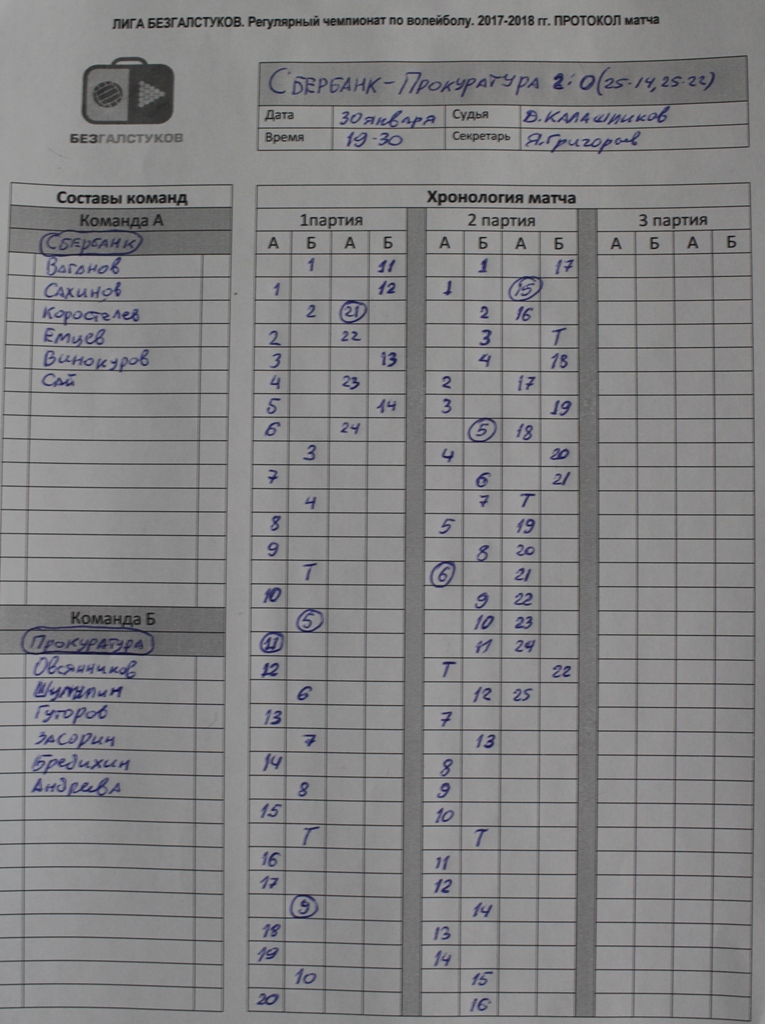 ЛИГА БЕЗГАЛСТУКОВ. Регулярный чемпионат по волейболу. 2017-2018 гг. ПРОТОКОЛ матча
БЕЗГАЛСТУКОВ
СБЕРБАНК-ПРОКУРАТУРА 2:0(25-14,25-22)
Дата 30 января Судья Д.КАЛАШНИКОВ
Время 19-30 Секретарь Я.Григорьев
Составы команд
Команда А
СБЕРБАНК
Ваганов
Сахинов
Коростелев
Емцев
Винокуров
Сай
Команда Б
ПРОКУРАТУРА
Овсянников
Гуторов
Засорин
Бредихин
Андреева
Хронология матча
1партия 2 партия 3 партия
А Б А Б А Б А Б А Б А Б
1 11 1 17
1 12 1 15
2 21 2 16
2 22 3 Т
3 13 4 18
4 23 2 17
5 14 3 19
6 24 5 18
3 4 20
7 6 21
4 7 Т
8 5 19
9 8 20
Т 6 21
10 9 22
5 10 23
11 11 24
12 Т 22
6 12 25
13 7
7 13
14 8
8 9
15 10
Т Т
16 11
17 12
9 14
18 13
19 14
10 15
20 16